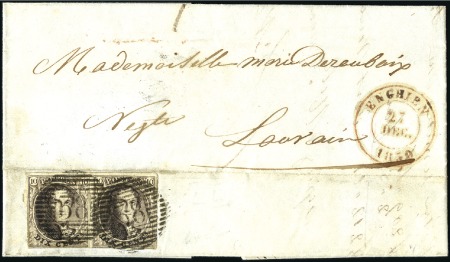 Mademoiselle marie Deroubaix
Negte
Louvain
ENGHIEN
27
DEC.
1850
38 38